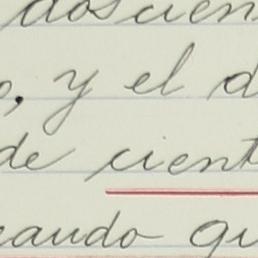 doscien
o, y el d
de cient
cando qu